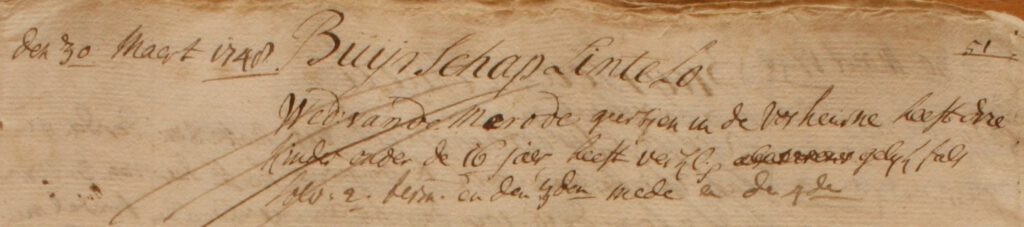 den 30 Maert 1748 Buijrschap Lintelo 51
Wed: van de Merode geertjen in de Vorheurne heeft drie
kinder onder de 16 jaer heeft gelijk als
folo. 2. term. en den 3den mede en de 4de